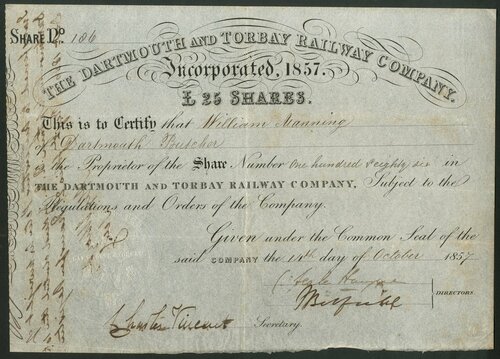 SHARE No. 186
THE DARTMOUTH AND TORBAY RAILWAY COMPANY.
Incorporated, 1857.
£ 25 SHARES.
This is to Certify that William Manning
of Dartmouth Butcher
is the Proprietor of the Share Number one hundred & eighty six in
THE DARTMOUTH AND TORBAY RAILWAY COMPANY, Subject to the
Regulations and Orders of the Company.
Given under the Common Seal of the
said COMPANY the 14th day of October 1857
DIRECTORS.
Secretary.